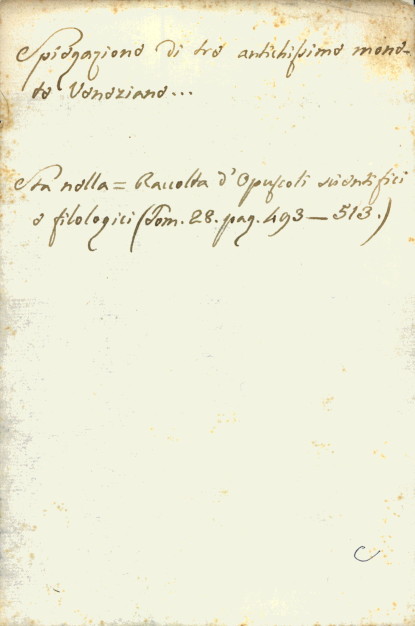 Spiegazione di tre antichissime mone-
te Veneziane...
Sta nella = Raccolta d'Opuscoli scientifici
e filologici (Tom. 28. pag. 493 — 513.)